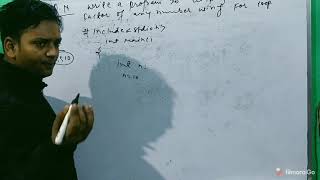 Write a program to
factor of any number using for loop
# include<stdio.h>
int main()
{
int n
n=10
filmoraGo